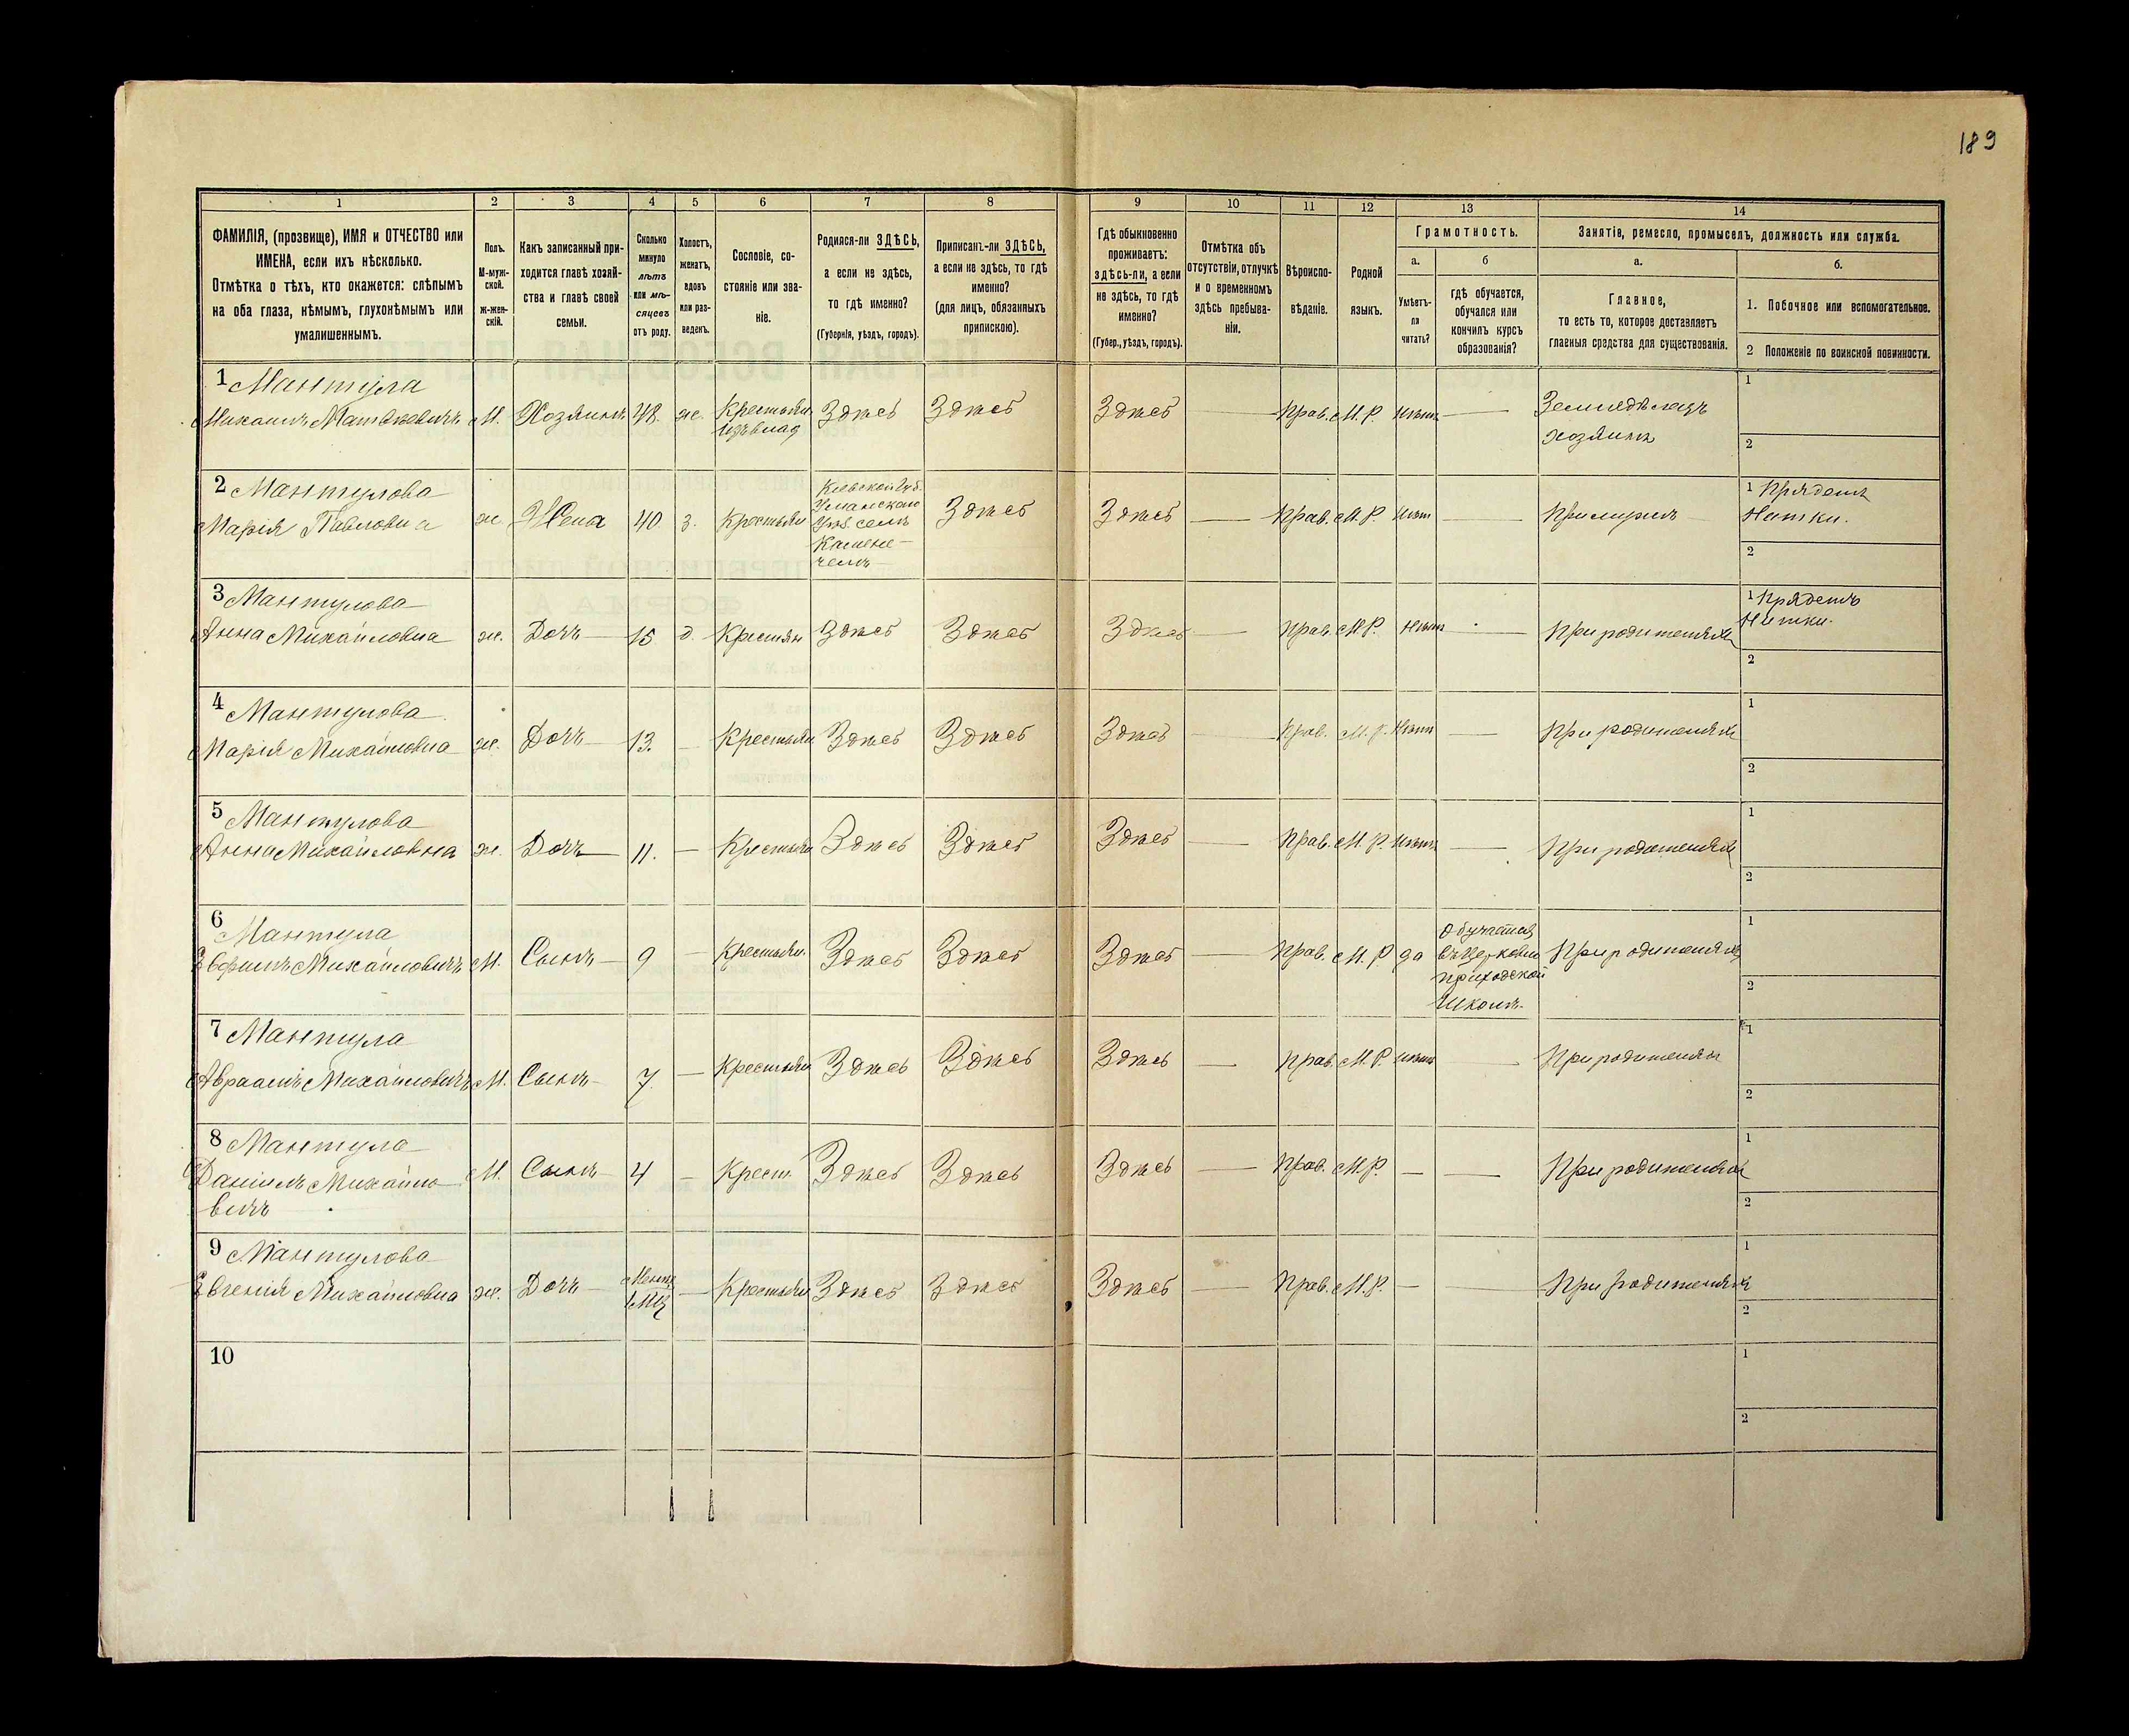 189
1 2 3 4 5 6 7 8 9 10 11 12 13 14
ФАМИЛІЯ, (прозвище), ИМЯ и ОТЧЕСТВО или
ИМЕНА, если ихъ нѣсколько.
Отмѣтка о тѣхъ, кто окажется: слѣпымъ
на оба глаза, нѣмымъ, глухонѣмымъ или
умалишеннымъ.
Полъ.
М-муж-
ской.
ж-жен-
скій.
Какъ записанный при-
ходится главѣ хозяй-
ства и главѣ своей
семьи.
Сколько
минуло
лѣтъ
или мѣ-
сяцевъ
отъ роду.
Холостъ,
женатъ,
вдовъ
или раз-
веденъ.
Сословіе, со-
стояніе или зва-
ніе.
Родился-ли ЗДѢСЬ,
а если не здѣсь,
то гдѣ именно?
(Губернія, уѣздъ, городъ).
Приписанъ-ли ЗДѢСЬ,
а если не здѣсь, то гдѣ
именно?
(для лицъ, обязанныхъ
припискою).
Гдѣ обыкновенно
проживаетъ:
здѣсь-ли, а если
не здѣсь, то гдѣ
именно?
(Губер., уѣздъ, городъ).
Отмѣтка объ
отсутствіи, отлучкѣ
и о временномъ
здѣсь пребыва-
ніи.
Вѣроиспо-
вѣданіе.
Родной
языкъ.
Грамотность.
а.
Умѣетъ-
ли
читать?
б
гдѣ обучается,
обучался или
кончилъ курсъ
образованія?
Занятіе, ремесло, промыселъ, должность или служба.
а.
Главное,
то есть то, которое доставляетъ
главныя средства для существованія.
б.
1. Побочное или вспомогательное.
2 Положеніе по воинской повинности.
1 Мантула
Михаилъ Матвѣевичъ М. Хозяинъ 48. ж. Крестьян. Здѣсь Здѣсь Здѣсь — Прав. М. Р. Нѣтъ — Земледѣлецъ 1
хозяинъ 2
2 Мантулова
Марія Павловна ж. Жена 40 з. Крестьян
Кіевской Губ.
Уманскаго
Уѣз. селѣ
Здѣсь Здѣсь — Прав. М. Р. Нѣтъ —
1 Прядетъ
Нитки.
2
3 Мантулова
Анна Михайловна ж. Дочь 15 д. Крестян Здѣсь Здѣсь Здѣсь — Прав. М. Р. Нѣтъ — При родителяхъ
1 Прядетъ
Нитки.
2
4 Мантулова
Марія Михайловна ж. Дочь 13. — Крестьян Здѣсь Здѣсь Здѣсь — Прав. М. Р. Нѣтъ — При родителяхъ 1
2
5 Мантулова
Анна Михайловна ж. Дочь 11. — Крестьян Здѣсь Здѣсь Здѣсь — Прав. М. Р. Нѣтъ — При родителяхъ 1
2
6 Мантула
Евфимъ Михайловичъ М. Сынъ 9 — Крестьян. Здѣсь Здѣсь Здѣсь — Прав. М. Р да
Обучается
въ Церковно
приходской
Школѣ.
При родителяхъ 1
2
7 Мантула
Авраамъ Михайловичъ М. Сынъ 7 — Крестьян Здѣсь Здѣсь Здѣсь — Прав. М. Р. Нѣтъ — При родителях 1
2
8 Мантула
Даніилъ Михайло- М. Сынъ 4 — Крест. Здѣсь Здѣсь Здѣсь — Прав. М. Р. — — При родителях 1
вичъ 2
9 Мантулова
Евгенія Михайловна ж. Дочь — Крестьян Здѣсь Здѣсь Здѣсь — Прав. М. Р. — — При родителях 1
2
10 1
2